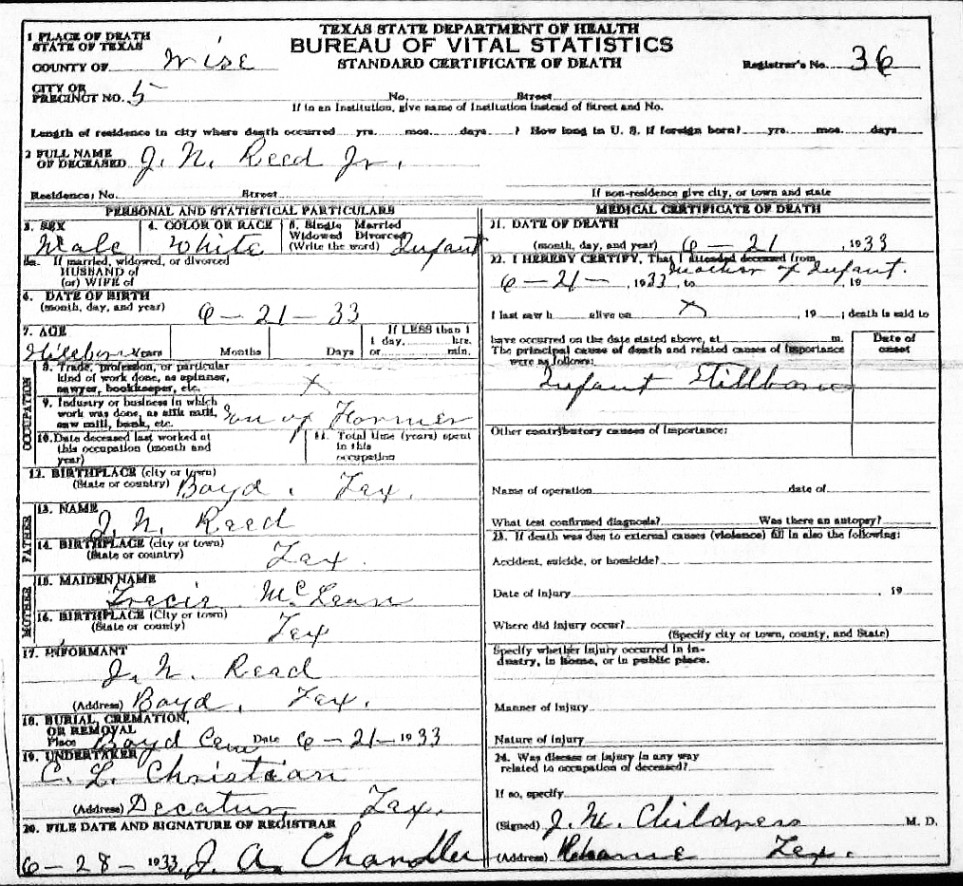 TEXAS STATE DEPARTMENT OF HEALTH
BUREAU OF VITAL STATISTICS
STANDARD CERTIFICATE OF DEATH
1 PLACE OF DEATH
STATE OF TEXAS
COUNTY OF Wise
Registrar's No. 36
CITY OR
PRECINCT NO. 5 No. Street
If in an Institution, give name of Institution instead of Street and No.
Length of residence in city where death occurred yrs. mos. days ? How long in U. S. if foreign born? yrs. mos. days
2 FULL NAME
OF DECEASED J. N. Reed Jr.
Residence: No. Street If non-residence give city, or town and state
PERSONAL AND STATISTICAL PARTICULARS
3. SEX Male
4. COLOR OR RACE White
5. Single Married
Widowed Divorced
(Write the word) Infant
5a. If married, widowed, or divorced
HUSBAND of
(or) WIFE of
6. DATE OF BIRTH
(month, day, and year) 6-21-33
7. AGE If LESS than 1
1 day, hrs.
Years Months Days or min.
OCCUPATION
8. Trade, profession, or particular
kind of work done, as spinner,
sawyer, bookkeeper, etc. X
9. Industry or business in which
work was done, as silk mill,
saw mill, bank, etc. Son of Farmer
10. Date deceased last worked at
this occupation (month and
year)
11. Total time (years) spent
in this
occupation
12. BIRTHPLACE (city or town)
(State or country) Boyd, Tex.
FATHER
13. NAME
J. N. Reed
14. BIRTHPLACE (city or town)
(State or country) Tex.
MOTHER
15. MAIDEN NAME
McLean
16. BIRTHPLACE (City or town)
(State or county) Tex
17. INFORMANT
J. N. Reed
(Address) Boyd, Tex.
18. BURIAL, CREMATION,
OR REMOVAL
Place Boyd Cem Date 6-21-1933
19. UNDERTAKER
C. L. Christian
(Address) Decatur, Tex.
20. FILE DATE AND SIGNATURE OF REGISTRAR
6-28-1933. J. A. Chandler
MEDICAL CERTIFICATE OF DEATH
21. DATE OF DEATH
(month, day, and year) 6-21, 1933
22. I HEREBY CERTIFY, That I attended deceased from
Mother of Infant.
6-21-, 1933 to , 19
I last saw h alive on X , 19 ; death is said to
have occurred on the date stated above, at m.
The principal cause of death and related causes of importance
were as follows:
Date of
onset
Infant Stillborn
Other contributory causes of importance:
Name of operation date of
What test confirmed diagnosis? Was there an autopsy?
23. If death was due to external causes (violence) fill in also the following:
Accident, suicide, or homicide?
Date of injury , 19
Where did injury occur?
(Specify city or town, county, and State)
Specify whether injury occurred in in-
dustry, in home, or in public place.
Manner of injury
Nature of injury
24. Was disease or injury in any way
related to occupation of deceased?
If so, specify
(Signed) J. M. Childress M. D.
(Address) Rhome Tex.